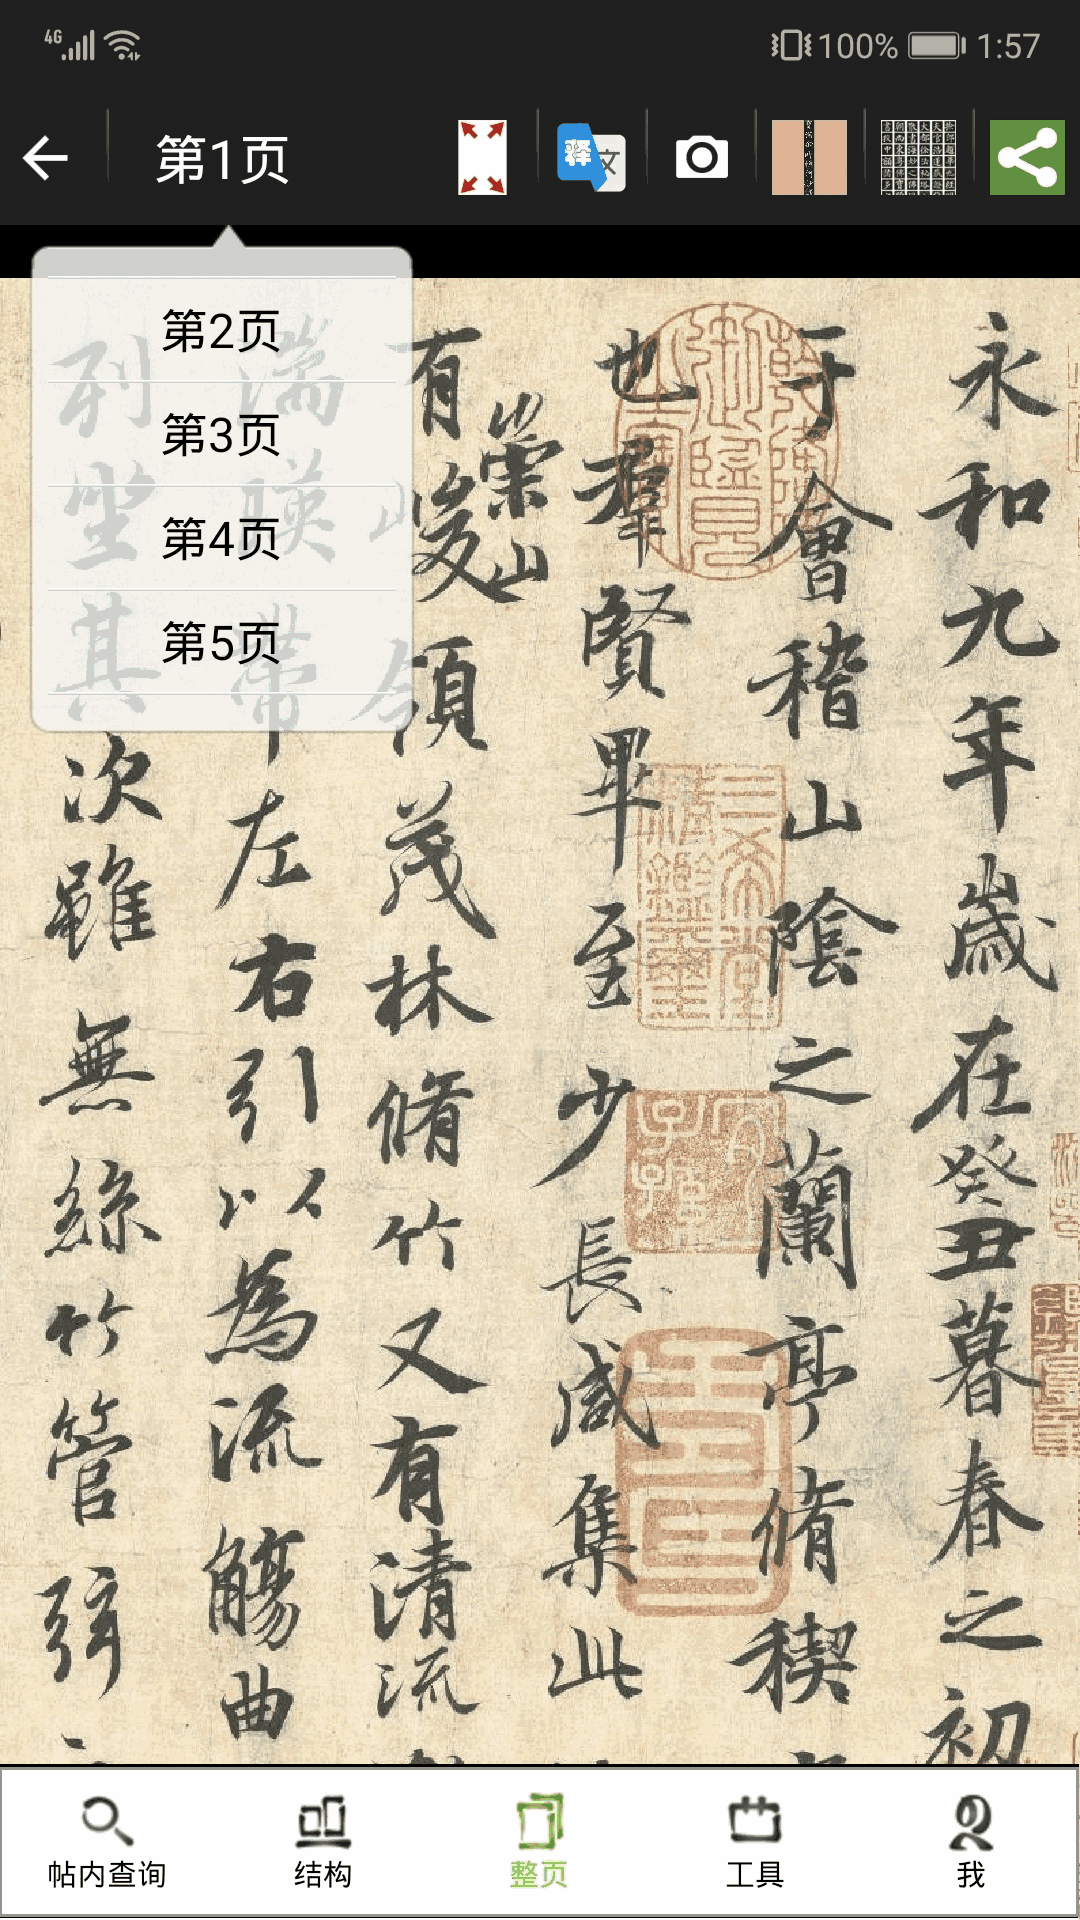 4G
100%
1:57
第1页
释
文
第2页
第3页
第4页
第5页
永和九年歲在癸丑暮春之初
于會稽山陰之蘭亭脩稧
也羣賢畢至少長咸集此
有崇山峻領茂林脩竹又有清流
湍暎帶左右引以為流觴曲
列坐其次雖無絲竹管弦
帖内查询
结构
整页
工具
我